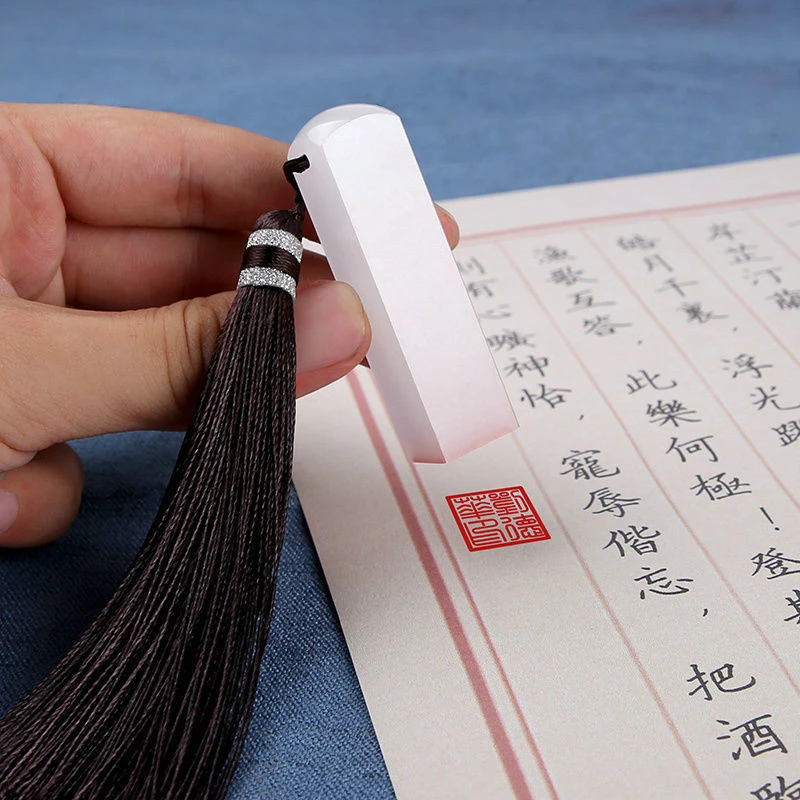 岸芷汀蘭
皓月千裏，浮光躍
漁歌互答，此樂何極！登斯
有心曠神怡，寵辱偕忘，把酒臨
劉德
華印